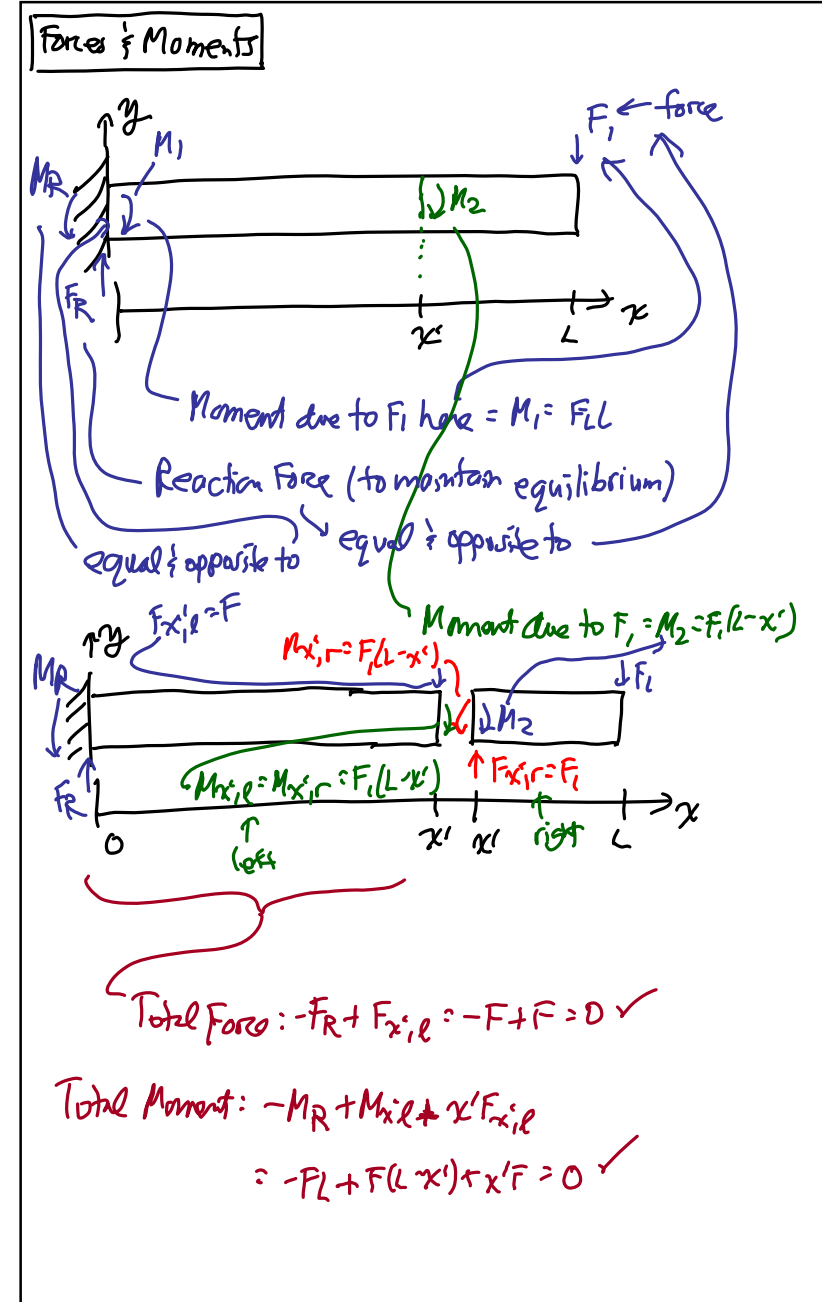 Forces & Moments
y
M₁
F₁ ← force
M_R
M₂
F_R
x' L x
Moment due to F₁ here = M₁ = F₁L
Reaction Force (to maintain equilibrium)
equal & opposite to
equal & opposite to
F_x',l = F
Moment due to F₁ = M₂ = F₁(L-x')
y
M_x',r = F₁(L-x')
M_R
F₁
M₂
M_x',l = M_x',r = F₁(L-x')
F_x',r = F₁
F_R
0 x' x' L x
left
right
Total Force: -F_R + F_x',l = -F + F = 0 ✓
Total Moment: -M_R + M_x',l + x'F_x',l
= -FL + F(L-x') + x'F = 0 ✓